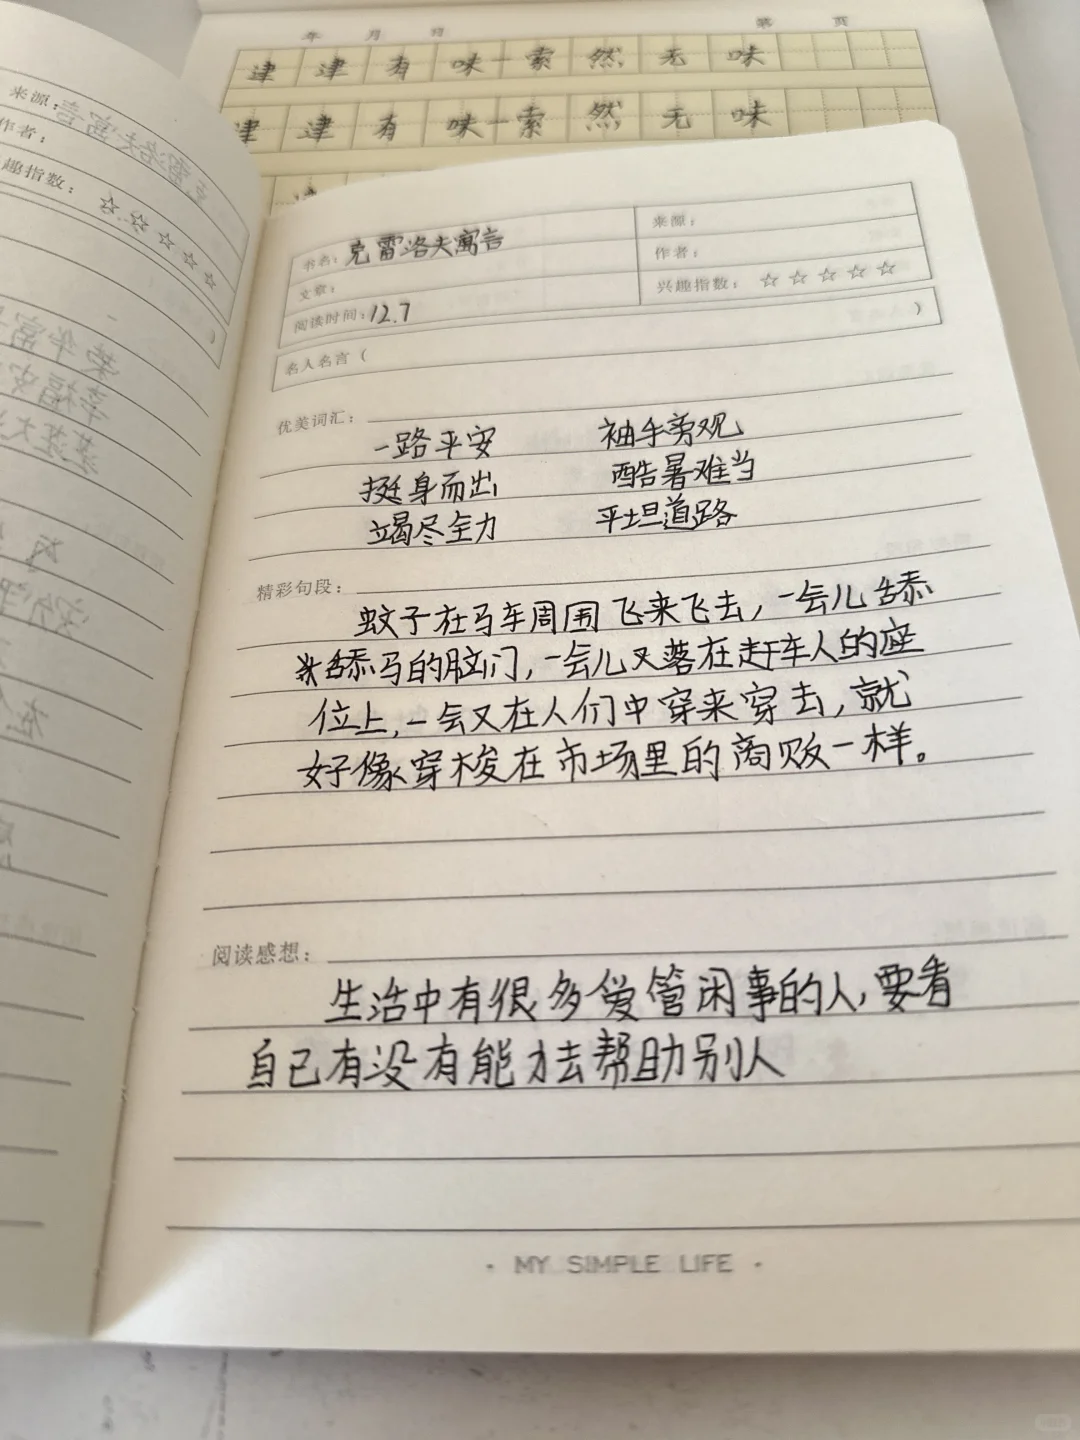 年 月 日 第 页
津津有味—索然无味
津津有味—索然无味
来源:
作者:
趣指数: ☆☆☆☆☆
书名: 克雷洛夫寓言
来源:
文章:
作者:
阅读时间: 12.7
兴趣指数: ☆☆☆☆☆
名人名言 ( )
优美词汇:
一路平安 袖手旁观
挺身而出 酷暑难当
竭尽全力 平坦道路
精彩句段:
蚊子在马车周围飞来飞去,一会儿舔
舔马的脑门,一会儿又落在赶车人的座
位上,一会又在人们中穿来穿去,就
好像穿梭在市场里的商贩一样。
阅读感想:
生活中有很多爱管闲事的人,要看
自己有没有能才去帮助别人
· MY SIMPLE LIFE ·